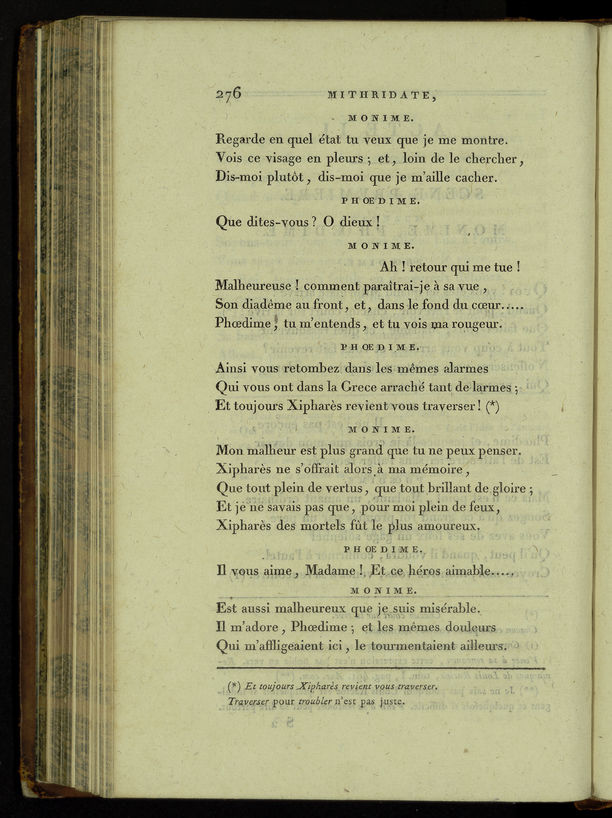 276 MITHRIDATE,
MONIME.
Regarde en quel état tu veux que je me montre.
Vois ce visage en pleurs ; et, loin de le chercher,
Dis-moi plutôt, dis-moi que je m'aille cacher.
PHŒDIME.
Que dites-vous ? O dieux !
MONIME.
Ah ! retour qui me tue !
Malheureuse ! comment paraîtrai-je à sa vue,
Son diadême au front, et, dans le fond du cœur.....
Phœdime, tu m'entends, et tu vois ma rougeur.
PHŒDIME.
Ainsi vous retombez dans les mêmes alarmes
Qui vous ont dans la Grece arraché tant de larmes ;
Et toujours Xipharès revient vous traverser ! (*)
MONIME.
Mon malheur est plus grand que tu ne peux penser.
Xipharès ne s'offrait alors à ma mémoire,
Que tout plein de vertus, que tout brillant de gloire ;
Et je ne savais pas que, pour moi plein de feux,
Xipharès des mortels fût le plus amoureux.
PHŒDIME.
Il vous aime, Madame ! Et ce héros aimable.....
MONIME.
Est aussi malheureux que je suis misérable.
Il m'adore, Phœdime ; et les mêmes douleurs
Qui m'affligeaient ici, le tourmentaient ailleurs.
(*) Et toujours Xipharès revient vous traverser.
Traverser pour troubler n'est pas juste.